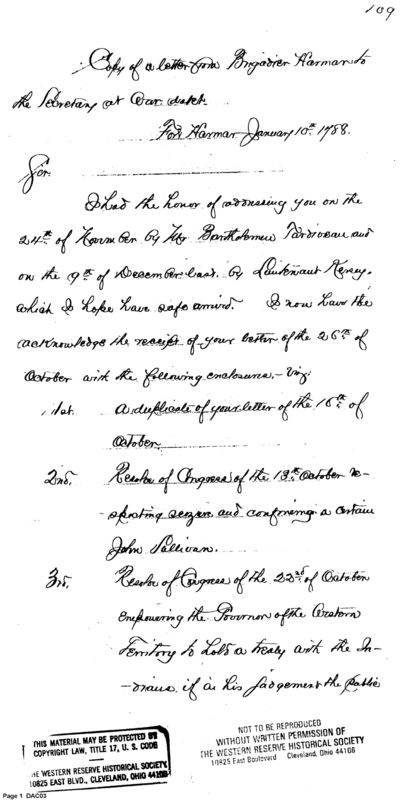 109
Copy of a letter from Brigadier Harmar to
the Secretary at War dated
Fort Harmar January 10th. 1788.
Sir.
I had the honor of addressing you on the
24th. of November by Mr. Bartholomew Tardiveau and
on the 9th. of December last. by Lieutenant Kersey.
which I hope have safe arrived. I now have the
acknowledge the receipt of your letter of the 26th. of
October with the following enclosures. - Viz:
1st. a duplicate of your letter of the 16th. of
October.
2nd. Resolve of Congress of the 13th. October re-
-specting seizing and confining a certain
John Sullivan.
3rd. Resolve of Congress of the 22nd. of October
empowering the Governor of the Western
Territory to hold a treaty with the In-
-dians, if in his judgement the public
THIS MATERIAL MAY BE PROTECTED BY
COPYRIGHT LAW, TITLE 17, U. S. CODE
THE WESTERN RESERVE HISTORICAL SOCIETY
10825 EAST BLVD., CLEVELAND, OHIO 44106
NOT TO BE REPRODUCED
WITHOUT WRITTEN PERMISSION OF
THE WESTERN RESERVE HISTORICAL SOCIETY
10825 East Boulevard Cleveland, Ohio 44106
Page 1 DAC03